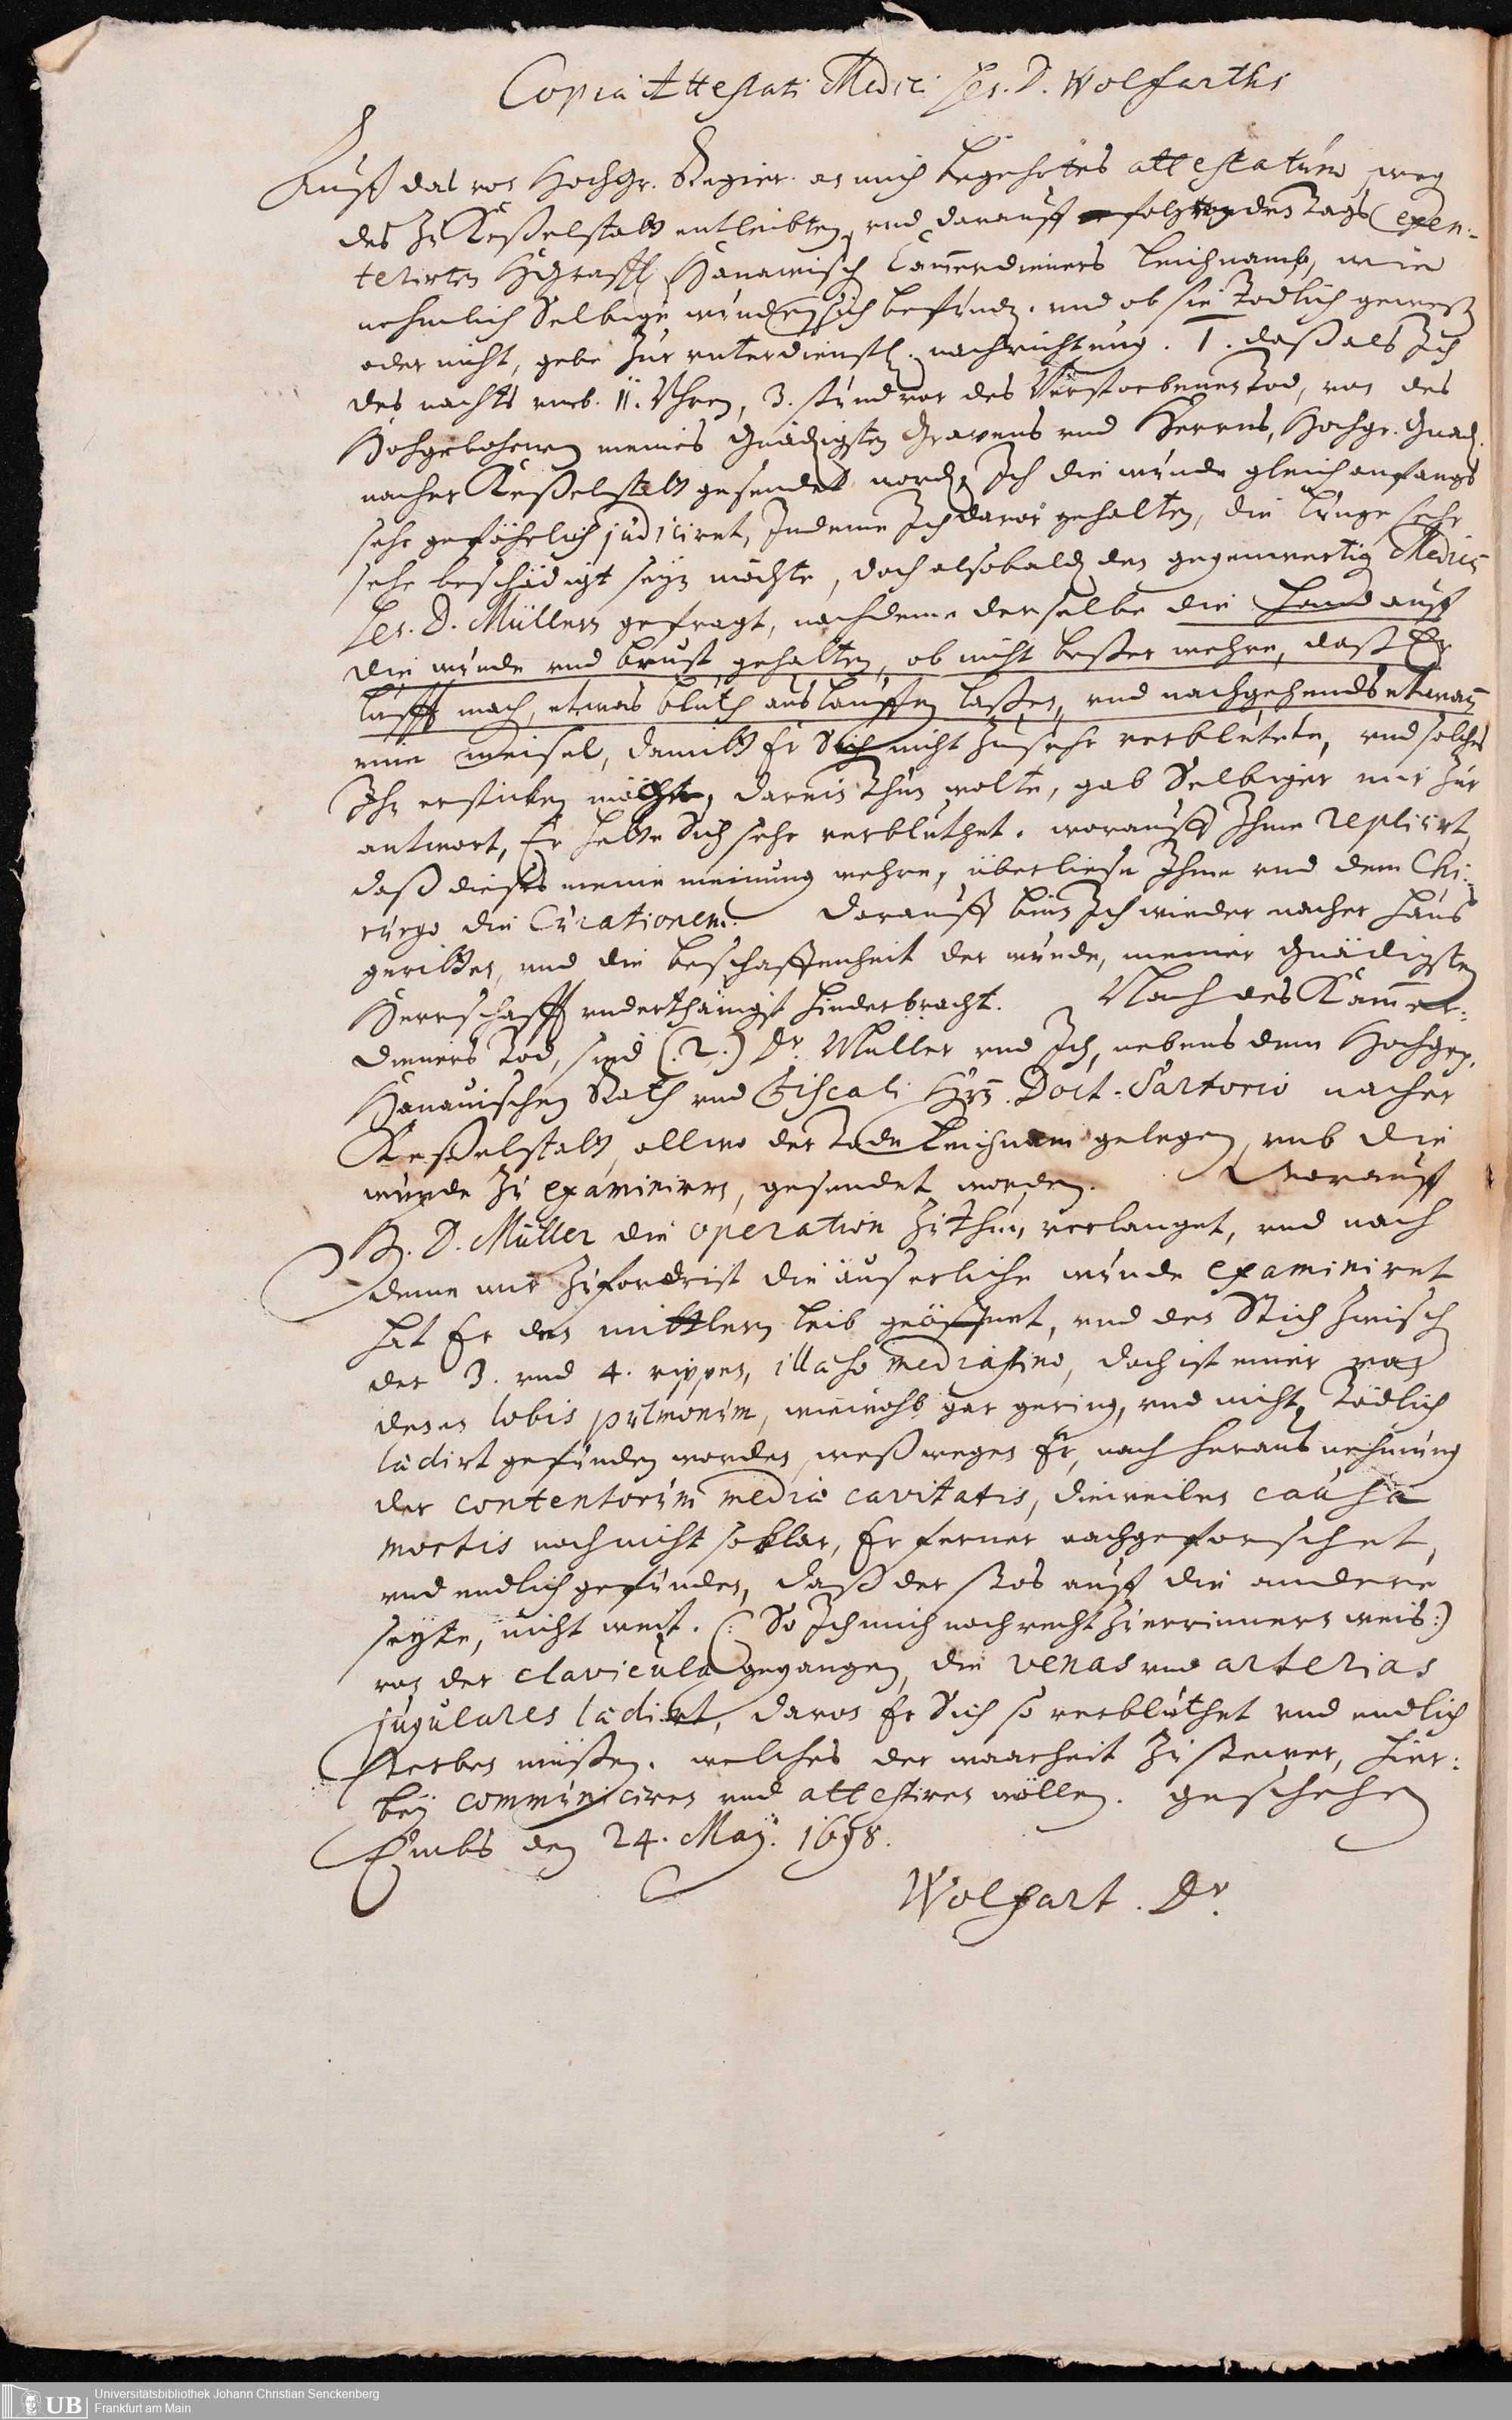 Copia Attestati Medici Hrn. D. Wolfarths
Auff das von Hochgr. Regier. an mich begehrtes attestatum, weg
des zu Keßelstatt entleibten, und darauff folgenden Tags exen-
terirten HGräffl. Hanawisch Cammerdieners Leichnamb, wie
nehmlich Selbige wunden sich befund. und ob sie Todlich geweß
oder nicht, gebe zur unterdienstl. nachrichtung. 1. daß als Ich
des nachts umb 11. Uhren, 3. stund vor des Verstorbenen Tod, von des
Hochgebohrnen meines Gnädigsten Gravens und Herrns, Hochgr. Gnad.
nacher Keßelstatt gesendet word, Ich die wunde gleich anfangs
sehr gefährlich judiciret, Indeme Ich davor gehalten, die Lunge sehr
sehr beschädigt seyn möchte, doch alsobald den gegenwertig Medic
Hrn. D. Müllern gefragt, nachdeme derselbe die Hand auff
die wunde und brust gehalten, ob nicht beßer wehre, daß Er
lufft mach, etwas bluth auslauffen laßen, und nachgehends etwan
eine meisel, damitt Er Sich nicht zu sehr verblutete, und solches
Ihn ersticken möchte, darein thun wolte, gab Selbiger mir zur
antwort, Er hette Sich sehr verbluthet. worauff Ihme replicirt,
daß dieses meine meinung wehre, überliese Ihme und dem Chi-
rurgo die Curationem. Darauff bin Ich wieder nacher Haus
geritten, und die beschaffenheit der wunde, meiner Gnädigsten
Herrschafft underthänigst hinderbracht. Nach des Kammer-
dieners Tod, sind (:2.) Dr. Müller und Ich, nebens dem Hochgr.
Hanauischen Rath und Fiscali Hrn. Doct. Sartorio nacher
Keßelstatt, allwo der Tode Leichnam gelegen, umb die
wunde zu examiniren, gesendet worden. Worauff
H. D. Müller die operation zu thun verlanget, und nach
deme wir zuforderist die äuserliche wunde examiniret
hat Er den mittlern Leib geöffnet, und den Stich zwisch
der 3. und 4. rippen, illæso mediastino, doch ist einer von
denen lobis pulmonum, wiewohl gar gering, und nicht Tödlich
lædirt gefunden worden, weßwegen Er, nach heraus nehmung
der contentorum mediæ cavitatis, dieweilen causa
mortis noch nicht so klar, Er ferner nachgeforschet,
und endlich gefunden, daß der stos auff die andere
seyte, nicht weit. (: So Ich mich noch recht zu erinnern weis :)
von der clavicula gegangen, die venas und arterias
jugulares lædirt, davon Er Sich so verbluthet und endlich
sterben müßen. welches der warheit zu stewer, hier-
beÿ communiciren und attestiren wöllen. geschehen
Embs den 24. Maÿ. 1678.
Wolfart. Dr.
UB Universitätsbibliothek Johann Christian Senckenberg
Frankfurt am Main